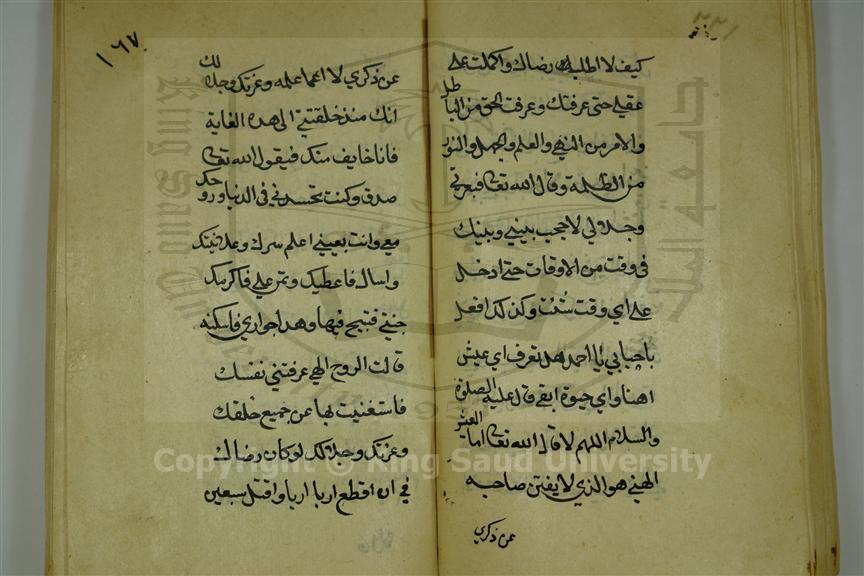 كيف لا اطلب رضاك واكملت على
عقلي حتى عرفتك وعرفت الحق من الباطل
والامر من النهي والعلم والجهل والنور
من الظلمة وقال الله تعا فبعزتي
وجلالي لا حجب بيني وبينك
في وقت من الاوقات حتى ادخل
على اي وقت شئت وكذلك افعل
باحبابي يا احمد هل تعرف اي عيش
اهنا واي حيوة ابقى قال عليه الصلوة
والسلام اللهم لا قال الله تعا اما العيش
الهني هو الذي لا يفتن صاحبه
عن ذكري
١٦٧
عن ذكري لا اعما علمه وعزتك وجلالك
انك منذ خلقتني الى هذه الغاية
فانا خايف منك فيقول الله تعا
صدق وكنت تحسدني في الدنيا وروحك
معي وانت بعيني اعلم سرك وعلانيتك
واسال فاعطيك وتمن علي فاكرمك
جنتي فتبجح فيها وهذا جواري فاسكنه
قالت الروح الهي عرفتني نفسك
فاستغنيت بها عن جميع خلقك
وعزتك وجلالك لو كان رضاك
في ان اقطع اربا اربا واقتل سبعين
جامعة الملك
King Saud University
Copyright © King Saud University